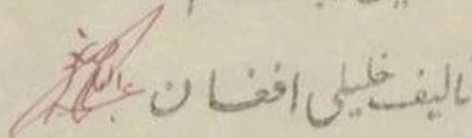 تالیف خلیلی افغان